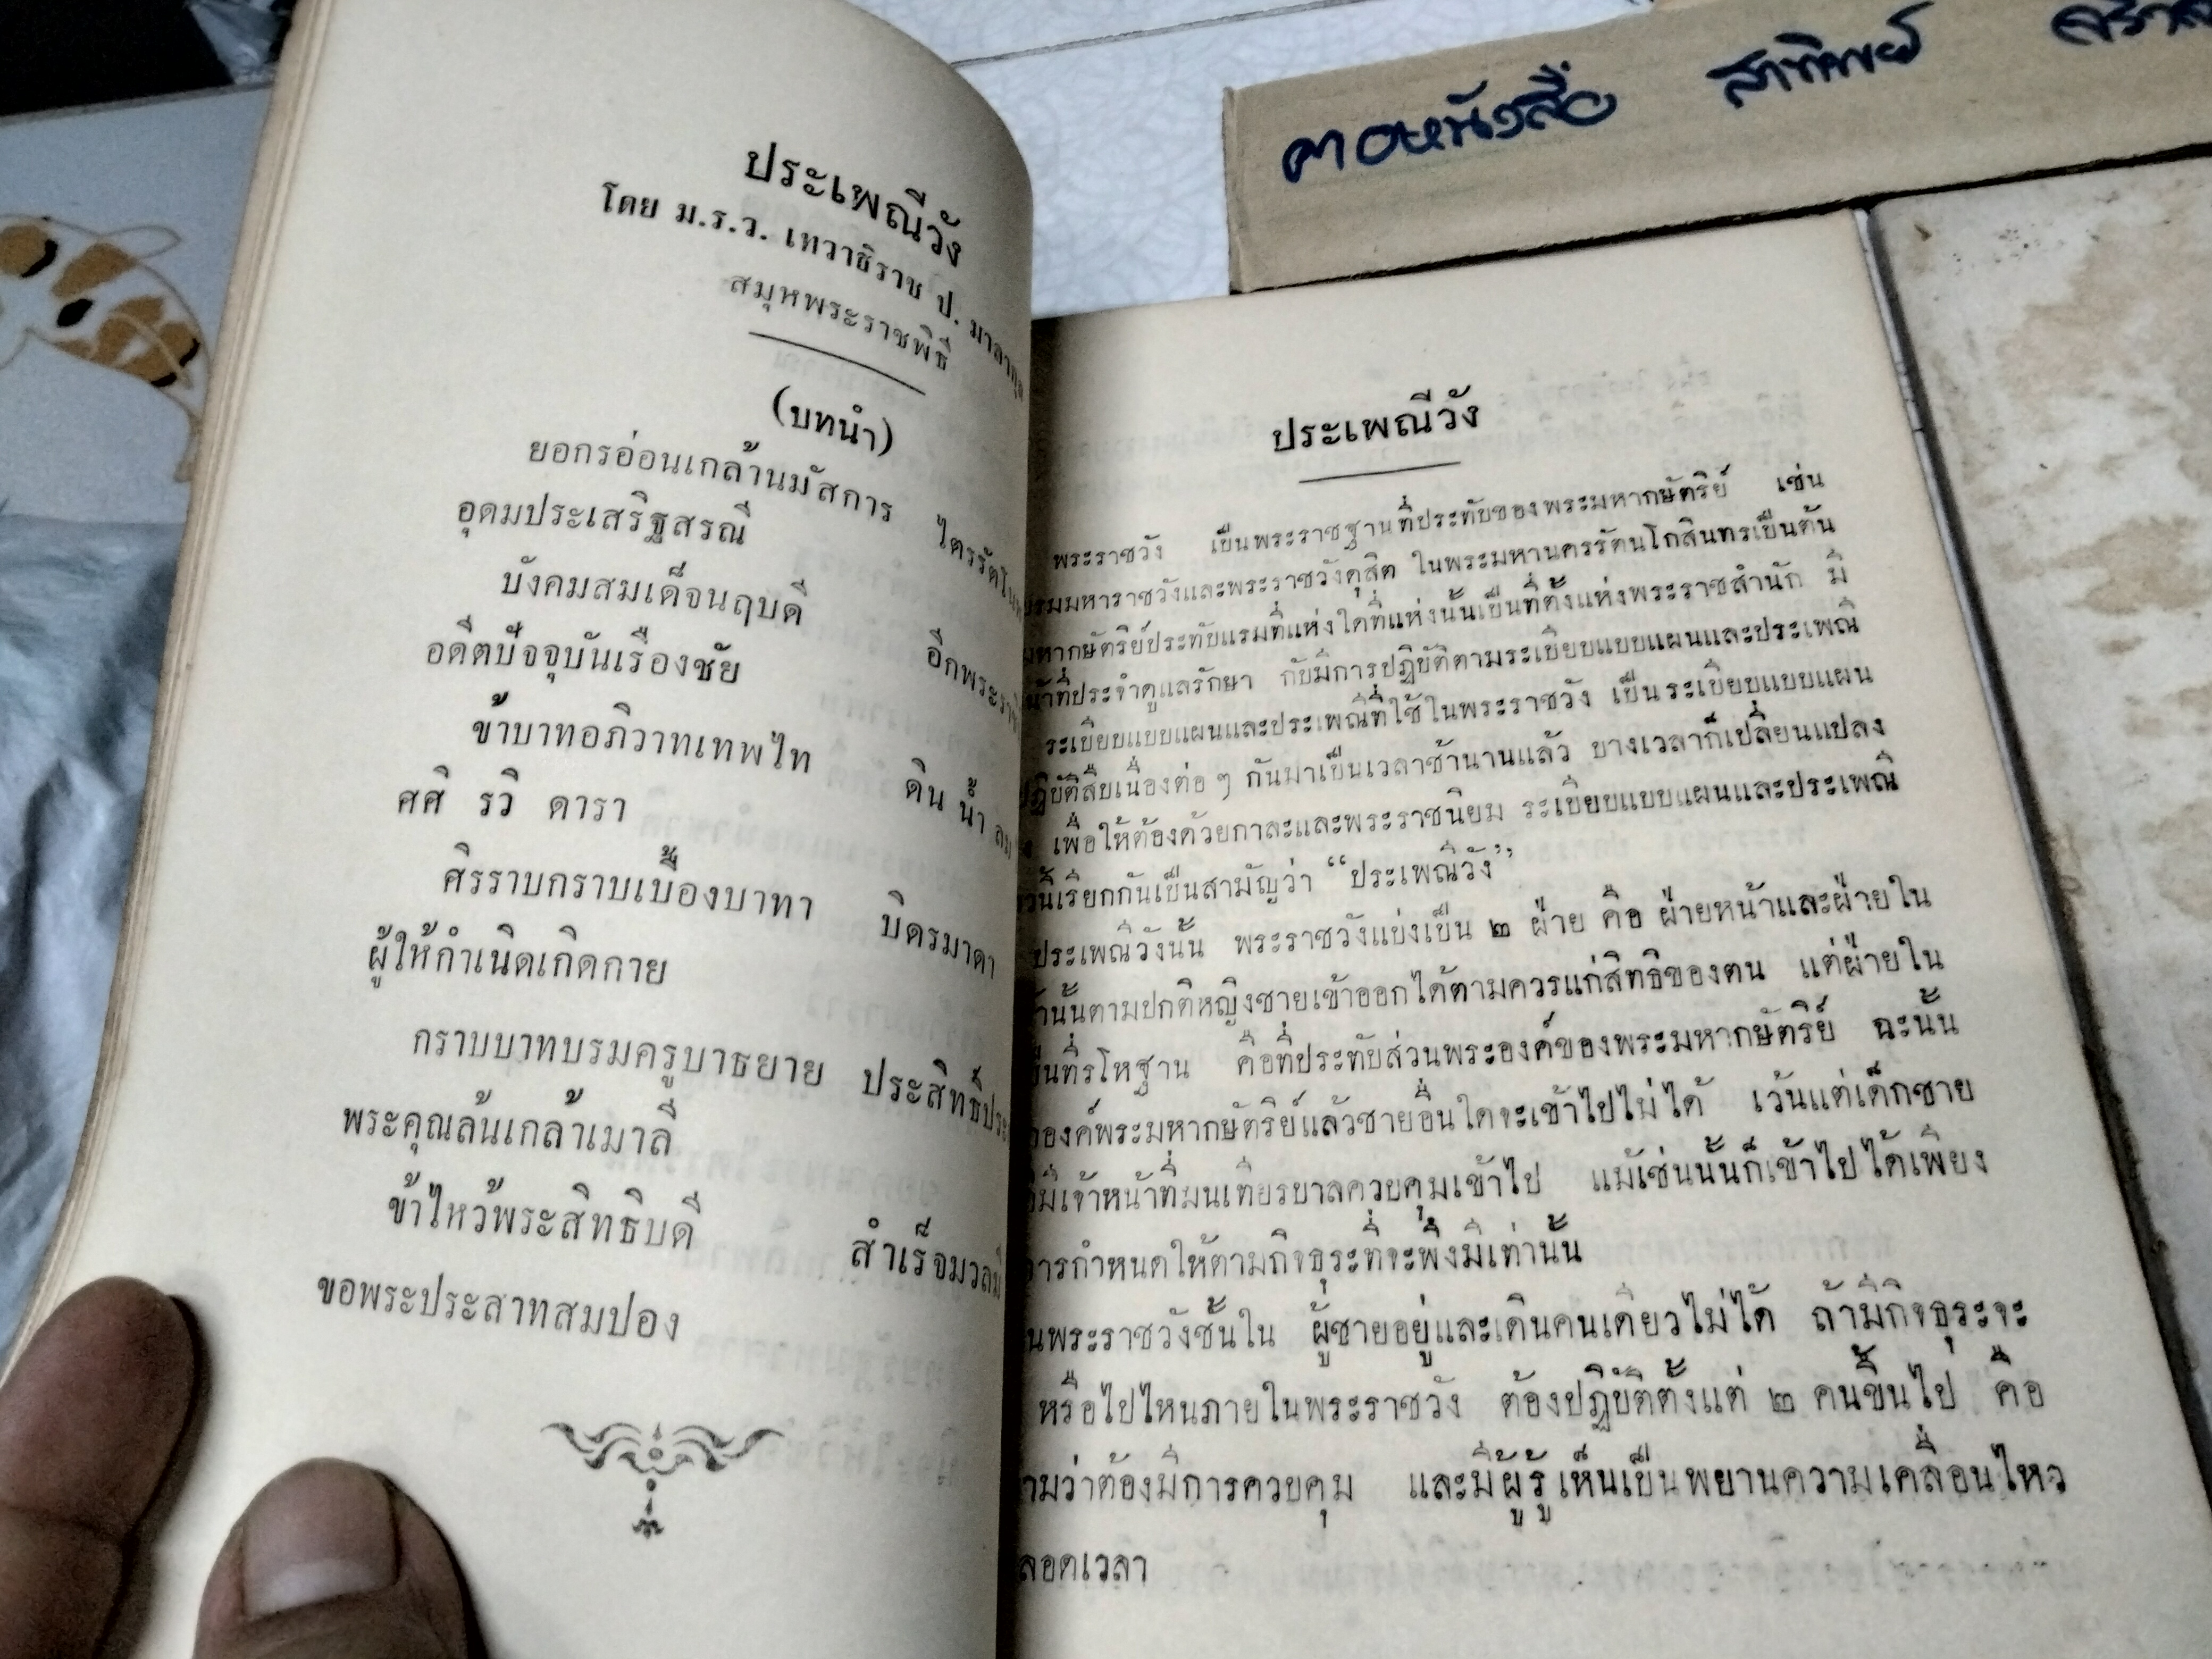 ประเพณีวัง
โดย ม.ร.ว. เทวาธิราช ป. มาลากุล
สมุหพระราชพิธี
(บทนำ)
ยอกรอ่อนเกล้านมัสการ
อุดมประเสริฐสรณี
บังคมสมเด็จนฤบดี
อดีตปัจจุบันเรืองชัย
ข้าบาทอภิวาทเทพไท ดิน น้ำ ลม
ศศิ รวิ ดารา
ศิรราบกราบเบื้องบาทา บิดรมาดา
ผู้ให้กำเนิดเกิดกาย
กราบบาทบรมครูบาธยาย
พระคุณล้นเกล้าเมาลี
ข้าไหว้พระสิทธิบดี
ขอพระประสาทสมปอง
ประเพณีวัง
พระราชวัง เป็นพระราชฐานที่ประทับของพระมหากษัตริย์ เช่น
รมมหาราชวังและพระราชวังดุสิต ในพระมหานครรัตนโกสินทรเป็นต้น
หากษัตริย์ประทับแรมที่แห่งใดที่แห่งนั้นเป็นที่ตั้งแห่งพระราชสำนัก มี
น้าที่ประจำดูแลรักษา กับมีการปฏิบัติตามระเบียบแบบแผนและประเพณี
ระเบียบแบบแผนและประเพณีที่ใช้ในพระราชวัง เป็นระเบียบแบบแผน
ปฏิบัติสืบเนื่องต่อ ๆ กันมาเป็นเวลาช้านานแล้ว บางเวลาก็เปลี่ยนแปลง
เพื่อให้ต้องด้วยกาละและพระราชนิยม ระเบียบแบบแผนและประเพณี
นี้เรียกกันเป็นสามัญว่า “ประเพณีวัง”
ประเพณีวังนั้น พระราชวังแบ่งเป็น ๒ ฝ่าย คือ ฝ่ายหน้าและฝ่ายใน
านั้นตามปกติหญิงชายเข้าออกได้ตามควรแก่สิทธิของตน แต่ฝ่ายใน
ป็นที่รโหฐาน คือที่ประทับส่วนพระองค์ของพระมหากษัตริย์ ฉะนั้น
องค์พระมหากษัตริย์แล้วชายอื่นใดจะเข้าไปไม่ได้ เว้นแต่เด็กชาย
มีเจ้าหน้าที่มนเทียรบาลควบคุมเข้าไป แม้เช่นนั้นก็เข้าไปได้เพียง
ารกำหนดให้ตามกิจธุระที่จะพึงมีเท่านั้น
นพระราชวังชั้นใน ผู้ชายอยู่และเดินคนเดียวไม่ได้ ถ้ามีกิจธุระจะ
หรือไปไหนภายในพระราชวัง ต้องปฏิบัติตั้งแต่ ๒ คนขึ้นไป คือ
ามว่าต้องมีการควบคุม และมีผู้รู้เห็นเป็นพยานความเคลื่อนไหว
ลอดเวลา